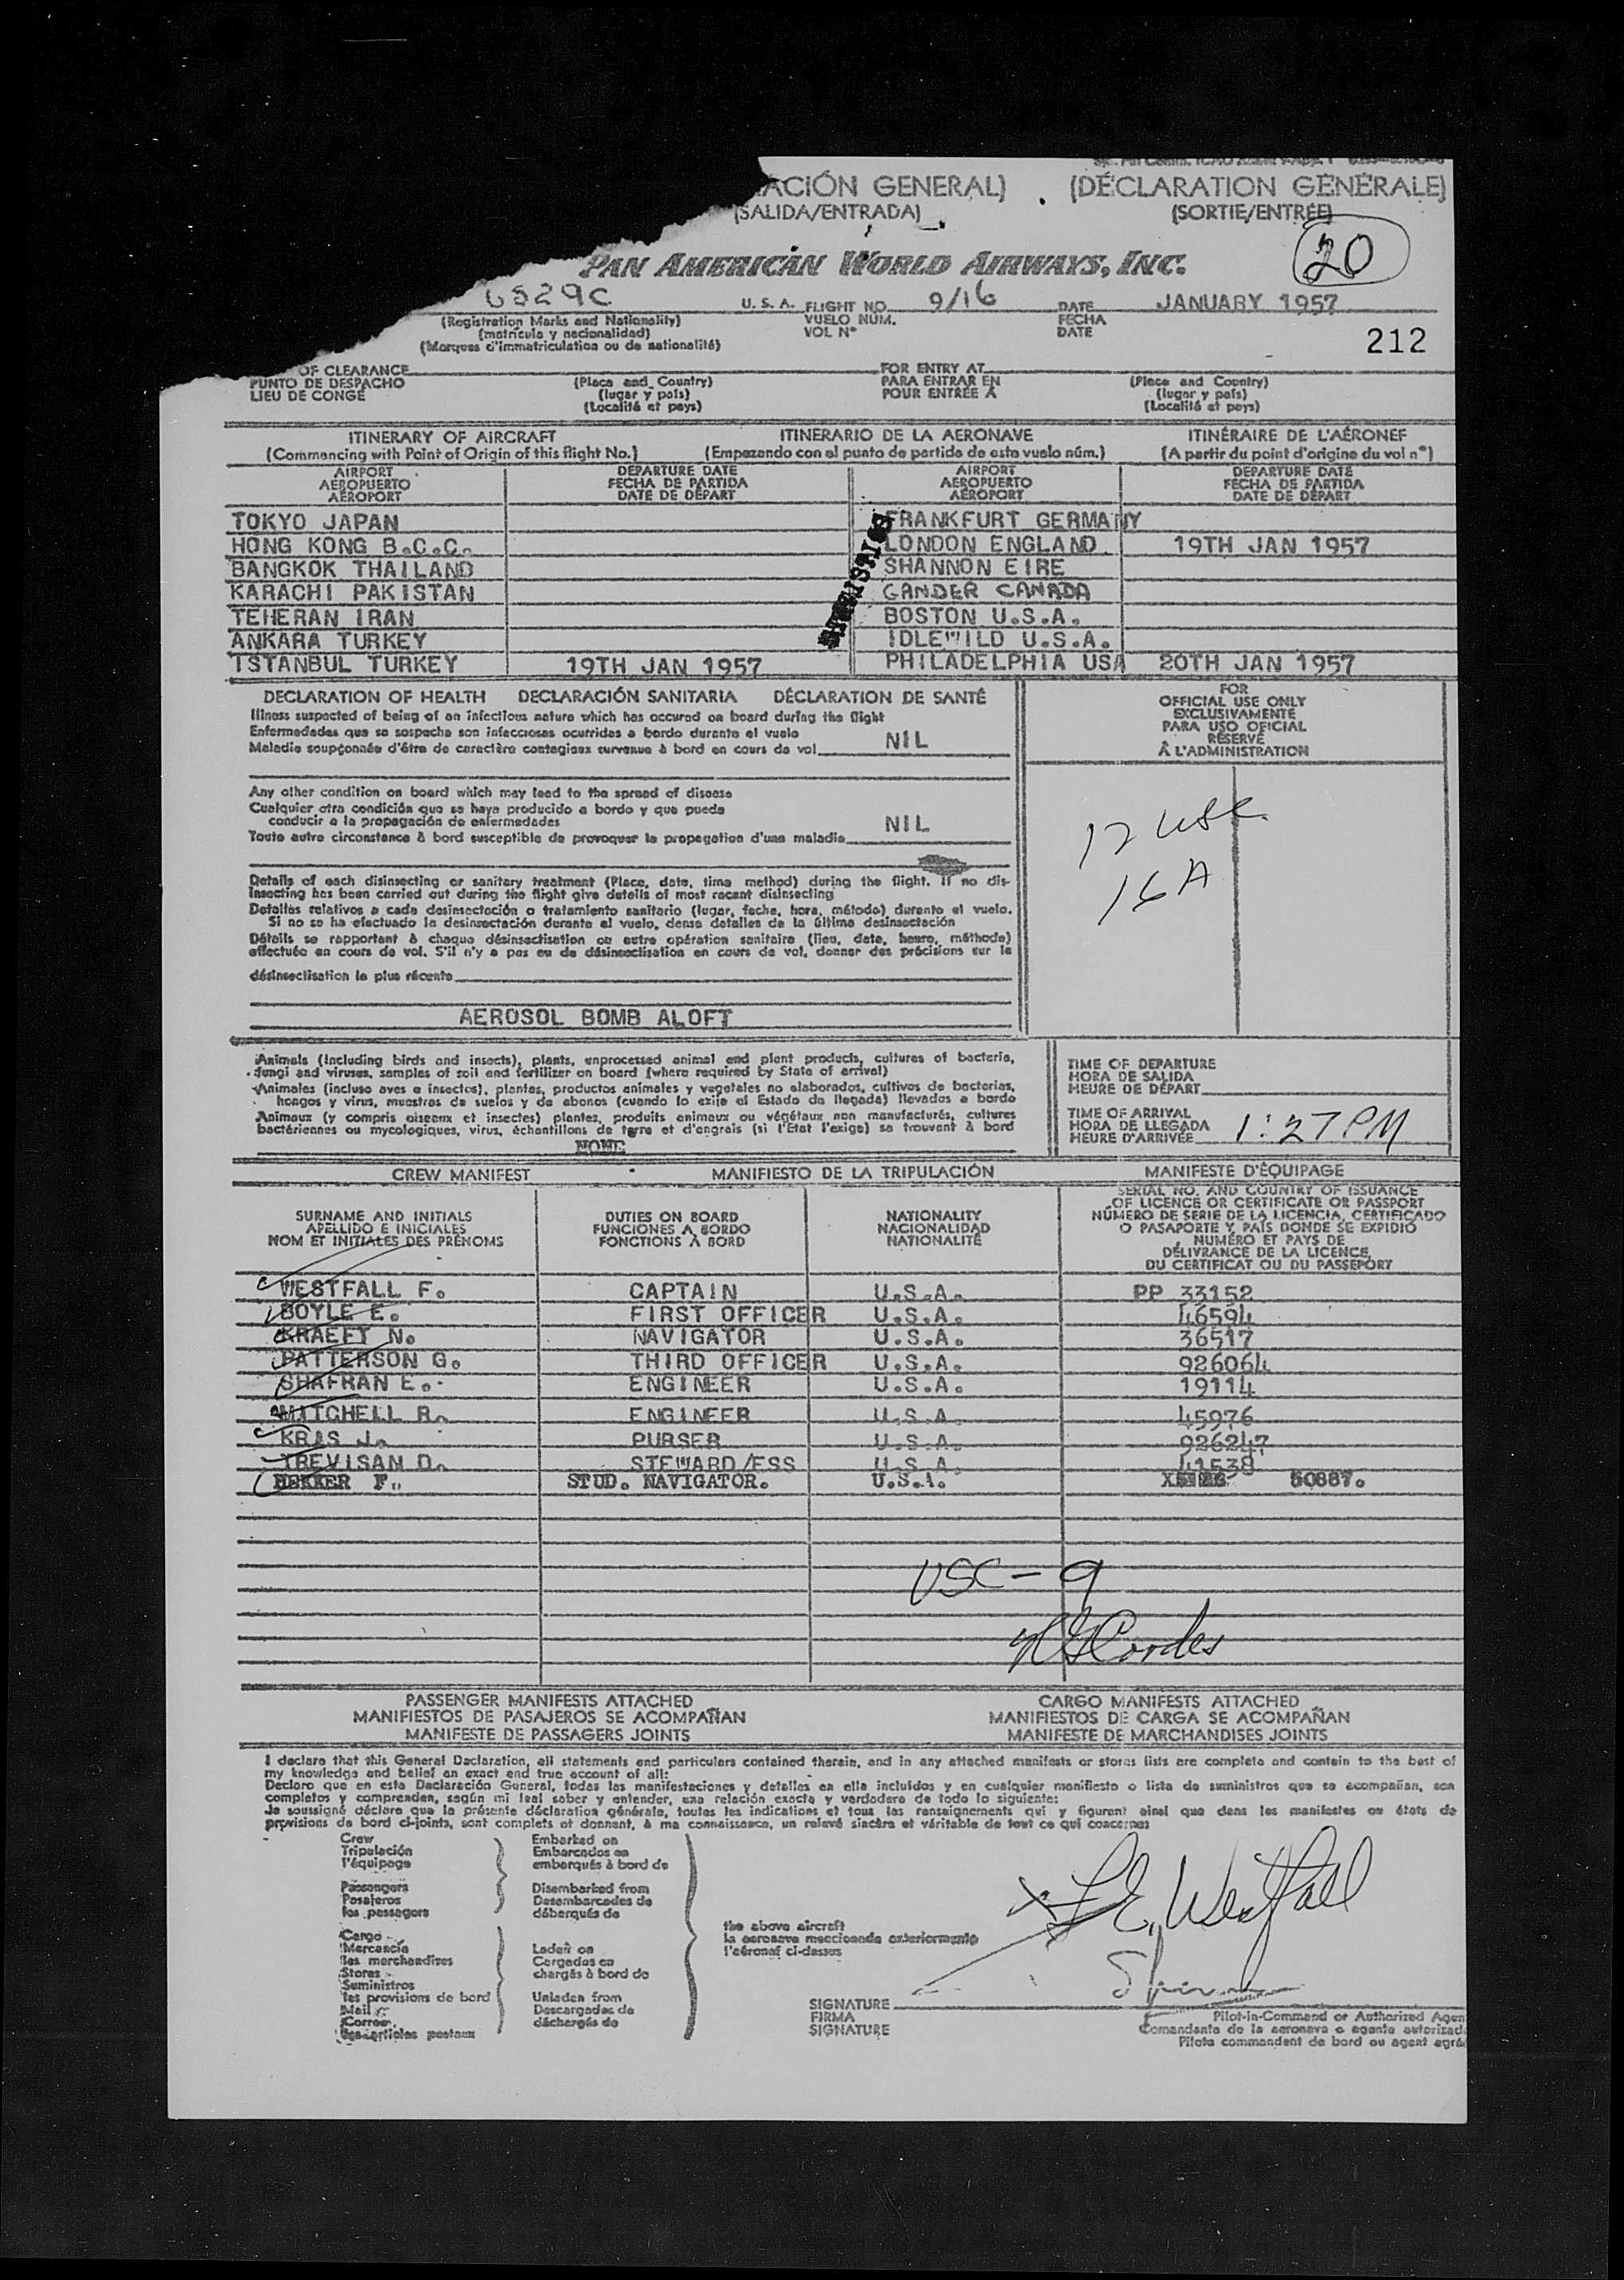 ACIÓN GENERAL) (DÉCLARATION GÉNÉRALE)
(SALIDA/ENTRADA) (SORTIE/ENTRÉE)
20
PAN AMERICAN WORLD AIRWAYS, INC.
6529C U. S. A. FLIGHT NO. 9/16 DATE JANUARY 1957
(Registration Marks and Nationality) VUELO NÚM. FECHA
(matrícula y nacionalidad) VOL Nº DATE
(Marques d'immatriculation ou de nationalité)
212
OF CLEARANCE FOR ENTRY AT
PUNTO DE DESPACHO (Place and Country) PARA ENTRAR EN (Place and Country)
LIEU DE CONGÉ (lugar y país) POUR ENTRÉE À (lugar y país)
(Localité et pays) (Localité et pays)
ITINERARY OF AIRCRAFT ITINERARIO DE LA AERONAVE ITINÉRAIRE DE L'AÉRONEF
(Commencing with Point of Origin of this flight No.) (Empezando con el punto de partida de este vuelo núm.) (A partir du point d'origine du vol nº)
AIRPORT DEPARTURE DATE AIRPORT DEPARTURE DATE
AEROPUERTO FECHA DE PARTIDA AEROPUERTO FECHA DE PARTIDA
AÉROPORT DATE DE DÉPART AÉROPORT DATE DE DÉPART
TOKYO JAPAN FRANKFURT GERMANY
HONG KONG B.C.C. LONDON ENGLAND 19TH JAN 1957
BANGKOK THAILAND SHANNON EIRE
KARACHI PAKISTAN GANDER CANADA
TEHERAN IRAN BOSTON U.S.A.
ANKARA TURKEY IDLEWILD U.S.A.
ISTANBUL TURKEY 19TH JAN 1957 PHILADELPHIA USA 20TH JAN 1957
DECLARATION OF HEALTH DECLARACIÓN SANITARIA DÉCLARATION DE SANTÉ
Illness suspected of being of an infectious nature which has occured on board during the flight
Enfermedades que se sospecha son infecciosas ocurridas a bordo durante el vuelo
Maladie soupçonnée d'être de caractère contagieux survenue à bord en cours de vol NIL
FOR
OFFICIAL USE ONLY
EXCLUSIVAMENTE
PARA USO OFICIAL
RÉSERVÉ
À L'ADMINISTRATION
Any other condition on board which may lead to the spread of disease
Cualquier otra condición que se haya producido a bordo y que pueda
conducir a la propagación de enfermedades
Toute autre circonstance à bord susceptible de provoquer la propagation d'une maladie NIL
12 USC
16A
Details of each disinsecting or sanitary treatment (Place, date, time method) during the flight. If no dis-
insecting has been carried out during the flight give details of most recent disinsecting
Detalles relativos a cada desinsectación o tratamiento sanitario (lugar, fecha, hora, método) durante el vuelo.
Si no se ha efectuado la desinsectación durante el vuelo, dense detalles de la última desinsectación
Détails se rapportant à chaque désinsectisation ou autre opération sanitaire (lieu, date, heure, méthode)
effectuée en cours de vol. S'il n'y a pas eu de désinsectisation en cours de vol, donner des précisions sur la
désinsectisation la plus récente
AEROSOL BOMB ALOFT
Animals (including birds and insects), plants, unprocessed animal and plant products, cultures of bacteria,
fungi and viruses, samples of soil and fertilizer on board (where required by State of arrival)
Animales (incluso aves e insectos), plantas, productos animales y vegetales no elaborados, cultivos de bacterias,
hongos y virus, muestras de suelos y de abonos (cuando lo exija el Estado de llegada) llevados a bordo
Animaux (y compris oiseaux et insectes) plantes, produits animaux ou végétaux non manufacturés, cultures
bactériennes ou mycologiques, virus, échantillons de terre et d'engrais (si l'État l'exige) se trouvant à bord
NONE
TIME OF DEPARTURE
HORA DE SALIDA
HEURE DE DÉPART
TIME OF ARRIVAL
HORA DE LLEGADA
HEURE D'ARRIVÉE 1:27 PM
CREW MANIFEST MANIFIESTO DE LA TRIPULACIÓN MANIFESTE D'ÉQUIPAGE
SURNAME AND INITIALS DUTIES ON BOARD NATIONALITY
APELLIDO E INICIALES FUNCIONES A BORDO NACIONALIDAD
NOM ET INITIALES DES PRÉNOMS FONCTIONS À BORD NATIONALITÉ
SERIAL NO. AND COUNTRY OF ISSUANCE
OF LICENCE OR CERTIFICATE OR PASSPORT
NÚMERO DE SERIE DE LA LICENCIA, CERTIFICADO
O PASAPORTE Y PAÍS DONDE SE EXPIDIÓ
NUMÉRO ET PAYS DE
DÉLIVRANCE DE LA LICENCE,
DU CERTIFICAT OU DU PASSEPORT
WESTFALL F. CAPTAIN U.S.A. PP 33152
BOYLE E. FIRST OFFICER U.S.A. 46594
KRAEFT N. NAVIGATOR U.S.A. 36517
PATTERSON G. THIRD OFFICER U.S.A. 926064
SHAFRAN E. ENGINEER U.S.A. 19114
MITCHELL R. ENGINEER U.S.A. 45976
KRIS J. PURSER U.S.A. 926247
TREVISAN D. STEWARD/ESS U.S.A. 41538
BEKKER F. STUD. NAVIGATOR. U.S.A. 50887.
USC - 9
PASSENGER MANIFESTS ATTACHED CARGO MANIFESTS ATTACHED
MANIFIESTOS DE PASAJEROS SE ACOMPAÑAN MANIFIESTOS DE CARGA SE ACOMPAÑAN
MANIFESTE DE PASSAGERS JOINTS MANIFESTE DE MARCHANDISES JOINTS
I declare that this General Declaration, all statements and particulars contained therein, and in any attached manifests or stores lists are complete and contain to the best of
my knowledge and belief an exact and true account of all:
Declaro que en esta Declaración General, todas las manifestaciones y detalles en ella incluídos y en cualquier manifiesto o lista de suministros que se acompañan, son
completos y comprenden, según mi leal saber y entender, una relación exacta y verdadera de todo lo siguiente:
Je soussigné déclare que la présente déclaration générale, toutes les indications et tous les renseignements qui y figurent ainsi que dans les manifestes ou états de
provisions de bord ci-joints, sont complets et donnent, à ma connaissance, un relevé sincère et véritable de tout ce qui concerne:
Crew Embarked on
Tripulación Embarcados en
l'équipage embarqués à bord de
Passengers Disembarked from
Pasajeros Desembarcados de
les passagers débarqués de
Cargo
Mercancía Laden on
les marchandises Cargados en
Stores chargés à bord de
Suministros
les provisions de bord Unladen from
Mail Descargados de
Correo déchargés de
les articles postaux
the above aircraft
la aeronave mencionada anteriormente
l'aéronef ci-dessus
F.E. Westfall
SIGNATURE
FIRMA
SIGNATURE
Pilot-in-Command or Authorized Agen
Comandante de la aeronave o agente autorizad
Pilote commandant de bord ou agent agré